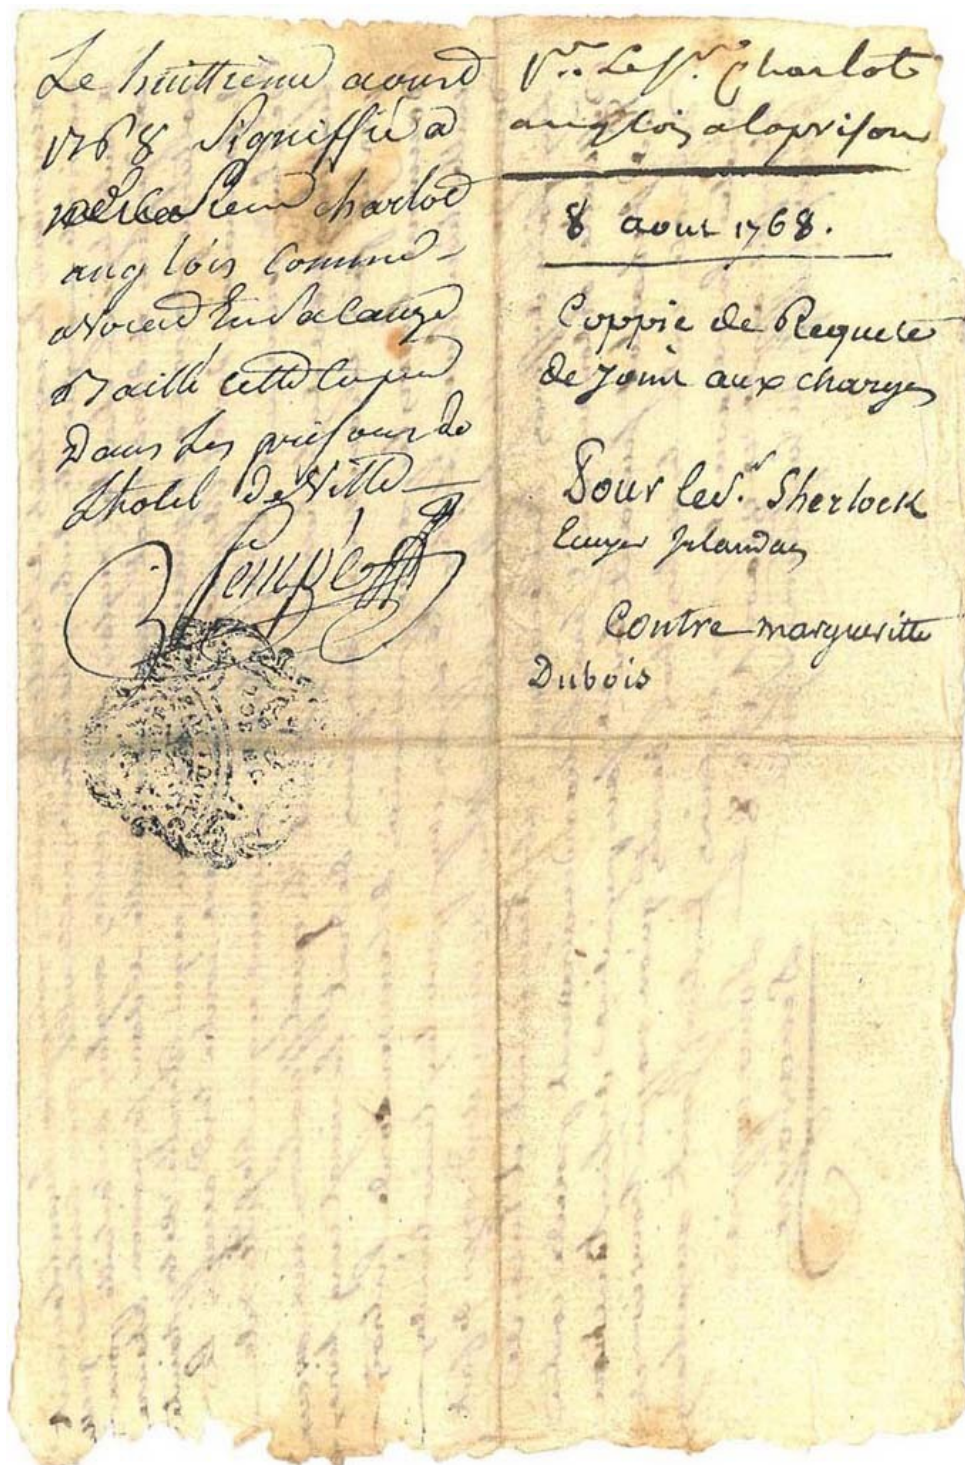 Le huittieme aoust
1768 Signiffié a
Sieur charlot
anglois comme
avocat En Sa Cauze
Baillé cette Coppie
Dans Les prisons de
Lhotel De Ville
Sempé
Le Sr. Charlot
anglois a la prison
8 aout 1768.
Coppie de Requete
de Joint aux charges
Pour le Sr. Sherlock
Ecuyer Jrlandais
Contre margueritte
Dubois